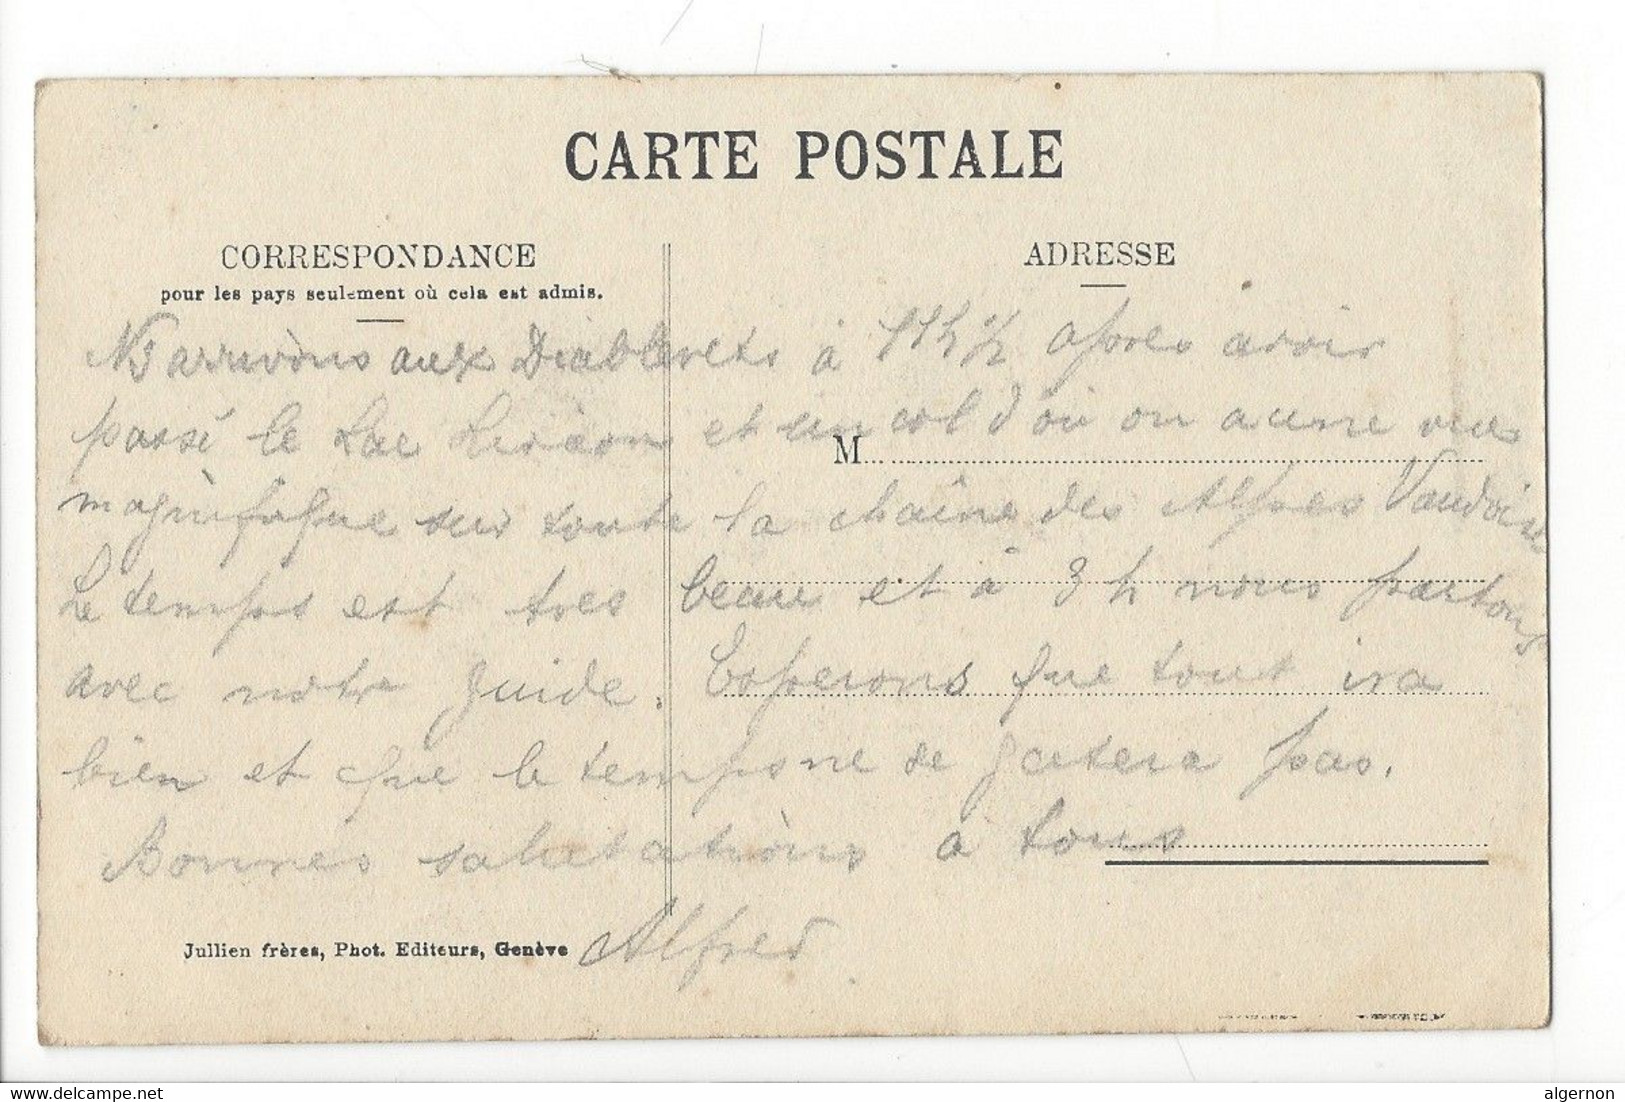 CARTE POSTALE
CORRESPONDANCE
pour les pays seulement où cela est admis.
ADRESSE
Ns arrivons aux Diablerets à 11 h ½ apres avoir
passé le Lac Lioson et un col d'où on a une vue
M
magnifique sur toute la chaîne des Alpes Vaudoises
Le temps est tres beau et à 3 h nous partons
avec notre guide. Esperons que tout ira
bien et que le temps ne se gatera pas.
Bonnes salutations a tous
Alfred
Jullien frères, Phot. Editeurs, Genève
www.delcampe.net
algernon